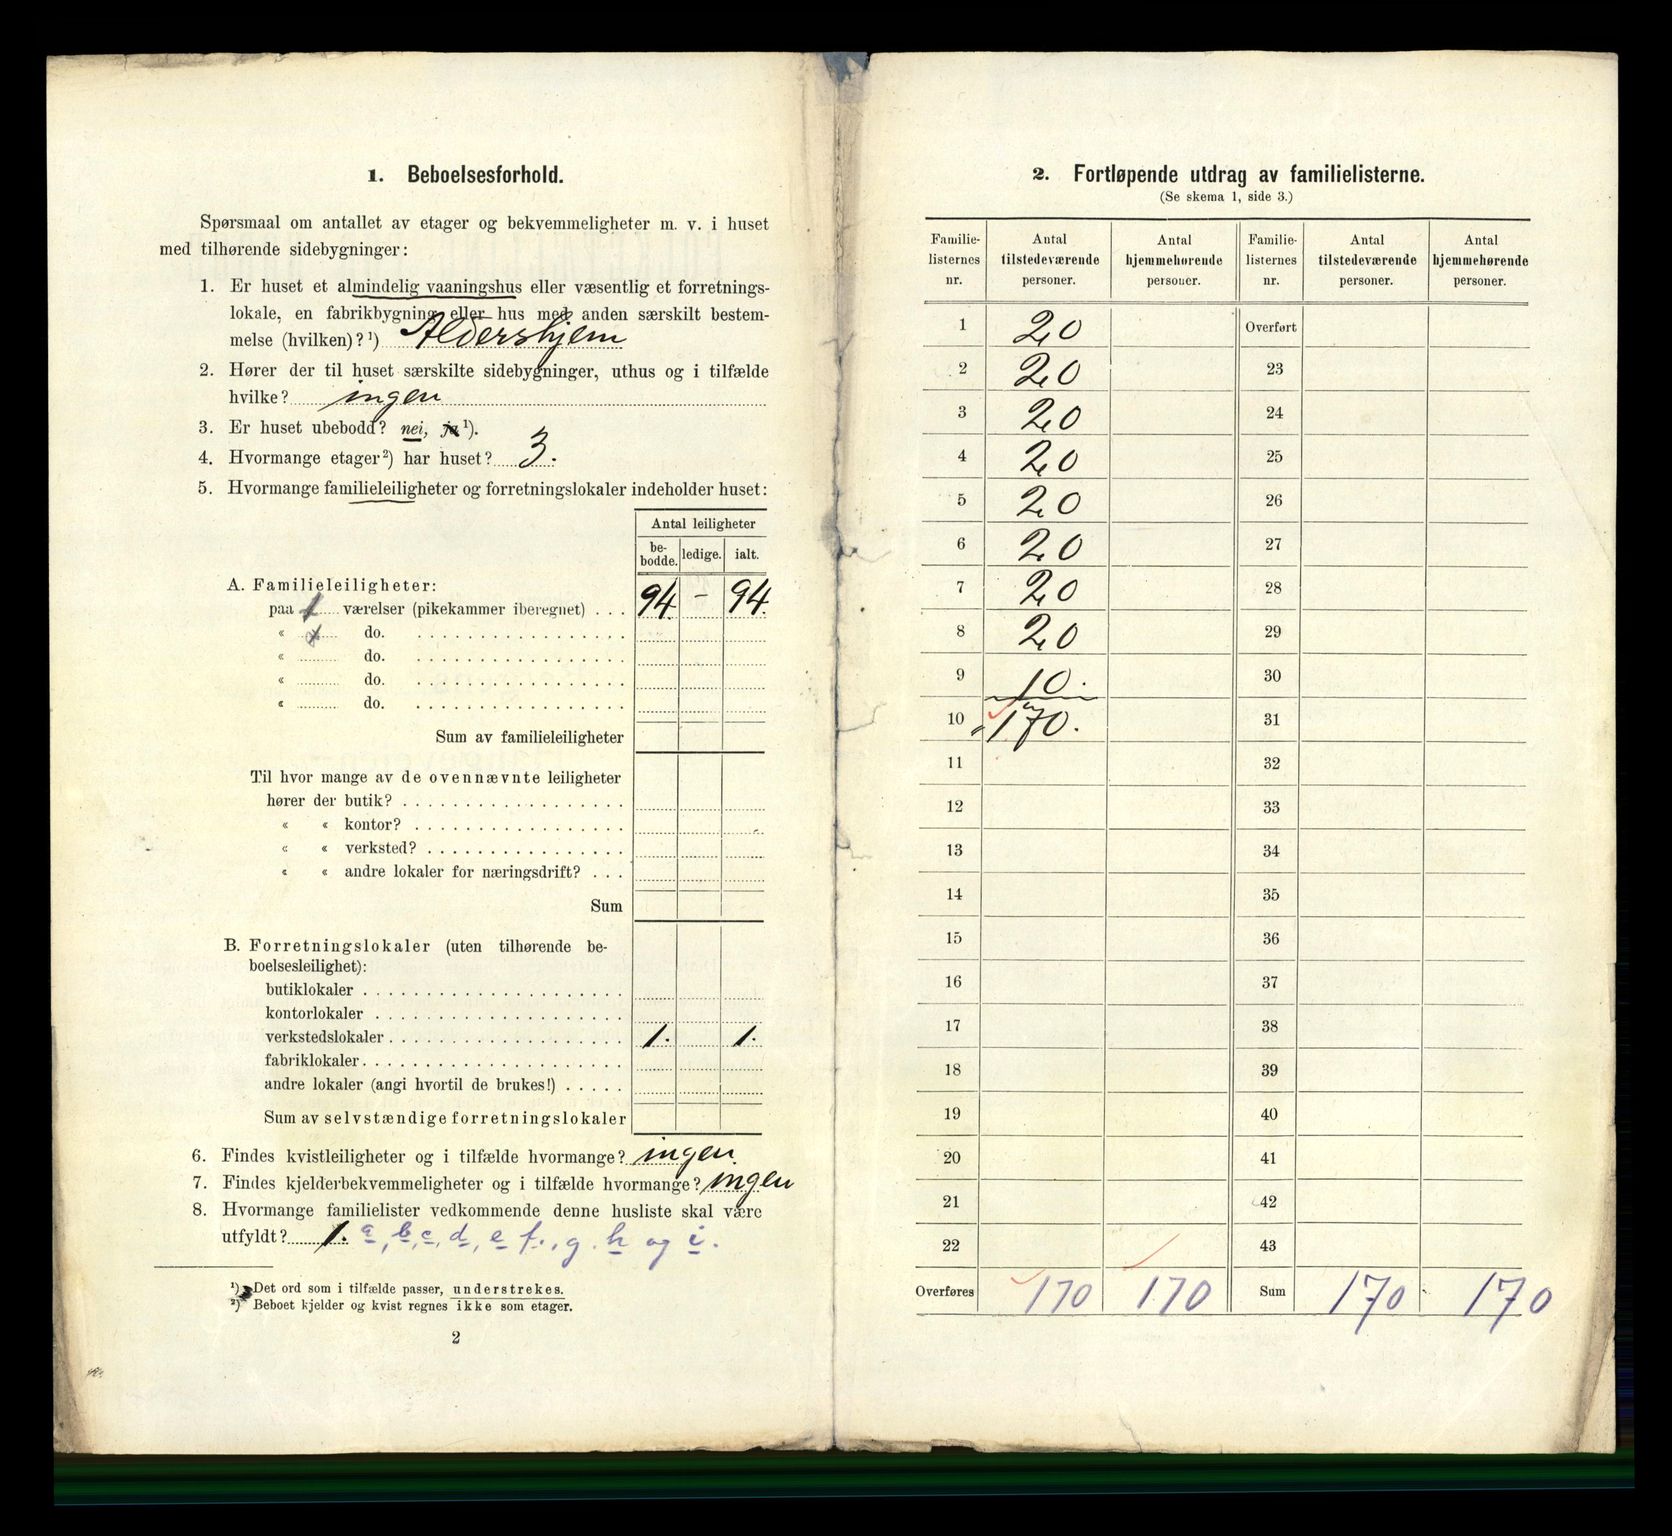 1. Beboelsesforhold.
Spørsmaal om antallet av etager og bekvemmeligheter m. v. i huset
med tilhørende sidebygninger:
1. Er huset et almindelig vaaningshus eller væsentlig et forretnings-
lokale, en fabrikbygning eller hus med anden særskilt bestem-
melse (hvilken)?¹) Aldershjem
2. Hører der til huset særskilte sidebygninger, uthus og i tilfælde
hvilke? ingen
3. Er huset ubebodd? nei, ja¹).
4. Hvormange etager²) har huset? 3.
5. Hvormange familieleiligheter og forretningslokaler indeholder huset:
Antal leiligheter
be-
bodde. ledige. ialt.
A. Familieleiligheter:
paa 1 værelser (pikekammer iberegnet) . . . 94. – 94.
« x do.
« do.
« do.
« do.
Sum av familieleiligheter
Til hvor mange av de ovennævnte leiligheter
hører der butik?
« « kontor?
« « verksted?
« « andre lokaler for næringsdrift? . . .
Sum
B. Forretningslokaler (uten tilhørende be-
boelsesleilighet):
butiklokaler
kontorlokaler
verkstedslokaler 1. 1.
fabriklokaler
andre lokaler (angi hvortil de brukes!)
Sum av selvstændige forretningslokaler
6. Findes kvistleiligheter og i tilfælde hvormange? ingen.
7. Findes kjelderbekvemmeligheter og i tilfælde hvormange? ingen
8. Hvormange familielister vedkommende denne husliste skal være
utfyldt? 1. a, b, c, d, e f., g. h og i.
¹) Det ord som i tilfælde passer, understrekes.
²) Beboet kjelder og kvist regnes ikke som etager.
2
2. Fortløpende utdrag av familielisterne.
(Se skema 1, side 3.)
Familie- Antal Antal Familie- Antal Antal
listernes tilstedeværende hjemmehørende listernes tilstedeværende hjemmehørende
nr. personer. personer. nr. personer. personer.
1 20 Overført
2 20 23
3 20 24
4 20 25
5 20 26
6 20 27
7 20 28
8 20 29
9 10. 30
10 170. 31
11 32
12 33
13 34
14 35
15 36
16 37
17 38
18 39
19 40
20 41
21 42
22 43
Overføres 170 170 Sum 170 170